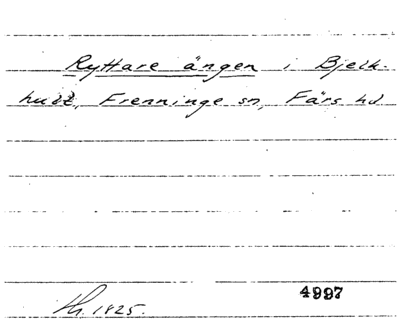 Ryttare ängen i Bjelk-
hult, Frenninge sn, Färs hd
Th. 1825.
4997